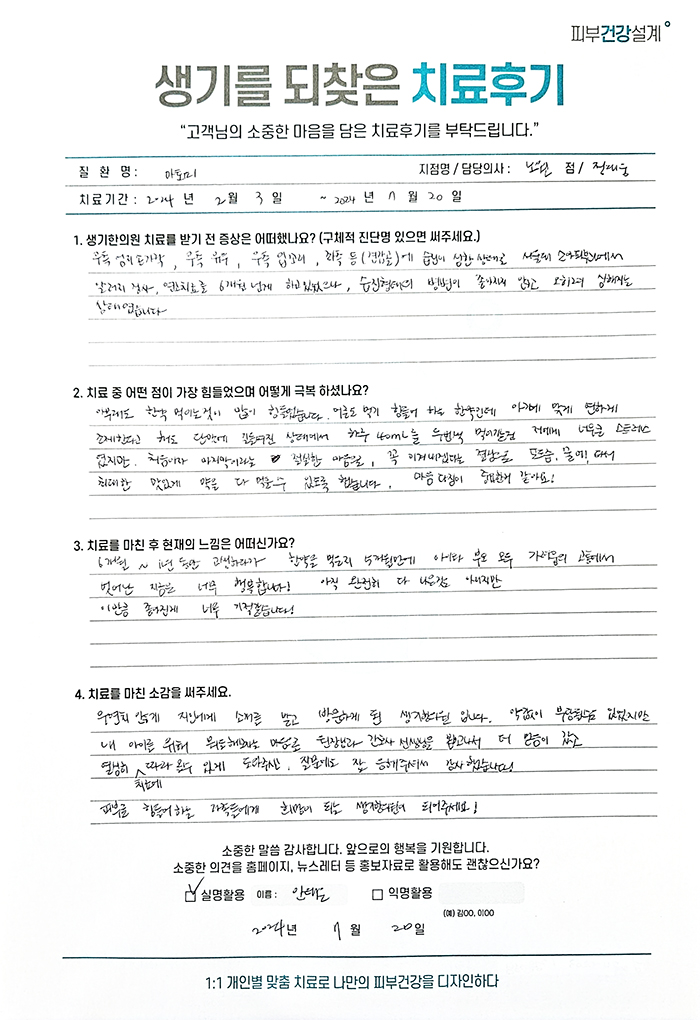 피부건강설계
생기를 되찾은 치료후기
“고객님의 소중한 마음을 담은 치료후기를 부탁드립니다.”
질 환 명 : 아토피 지점명 / 담당의사 : 노원 점 / 정대웅
치료기간 : 2024 년 2월 3 일 ~ 2024 년 7 월 20 일
1. 생기한의원 치료를 받기 전 증상은 어떠했나요? (구체적 진단명 있으면 써주세요.)
무릎 엄지손가락, 무릎 위, 무릎, 등에 습진이 심한 상태로 서울대 소아피부과에서
알러지 검사, 연고치료를 6개월 넘게 하고 있었으나, 습진형태의 병변이 좋아지지 않고 오히려 심해지는
상태였습니다
2. 치료 중 어떤 점이 가장 힘들었으며 어떻게 극복 하셨나요?
아무래도 한약 먹이는것이 많이 힘들었습니다. 어른도 먹기 힘들어 하는 한약인데 아기에 맞게 연하게
조제한다고 해도 단맛에 길들여진 상태에서 하루 40mL을 두번씩 먹이는건 저에게 너무큰 스트레스
였지만. 처음이자 마지막이라는 절실한 마음으로, 꼭 이겨내겠다는 결심으로 물에! 타서
최대한 맛있게 약을 다 먹을수 있도록 했습니다. 마음 다짐이 중요한거 같아요!
3. 치료를 마친 후 현재의 느낌은 어떠신가요?
6개월 ~ 1년 동안 고생하다가 한약을 먹은지 5개월만에 아이와 부모 모두 가려움의 고통에서
벗어난 지금은 너무 행복합니다! 아직 완전히 다 나은건 아니지만
이만큼 좋아진게 너무 기적같습니다!
4. 치료를 마친 소감을 써주세요.
우연히 알게 지인에게 소개를 받고 방문하게 된 생기한의원 입니다. 약값이 부담됐던 있었지만
내 아이를 위해 뭐든해보자는 마음으로 원장님과 간호사 선생님을 뵙고나서 더 믿음이 갔고
열심히 치료에 따라 올수 있게 도와주신. 질문에도 잘 응해주셔서 감사했습니다!
피부로 힘들어하는 가족들에게 희망이 되는 생기한의원이 되어주세요!
소중한 말씀 감사합니다. 앞으로의 행복을 기원합니다.
소중한 의견을 홈페이지, 뉴스레터 등 홍보자료로 활용해도 괜찮으신가요?
실명활용 이름 : 익명활용
(예) 김OO, 이OO
2024년 7 월 20일
1:1 개인별 맞춤 치료로 나만의 피부건강을 디자인하다